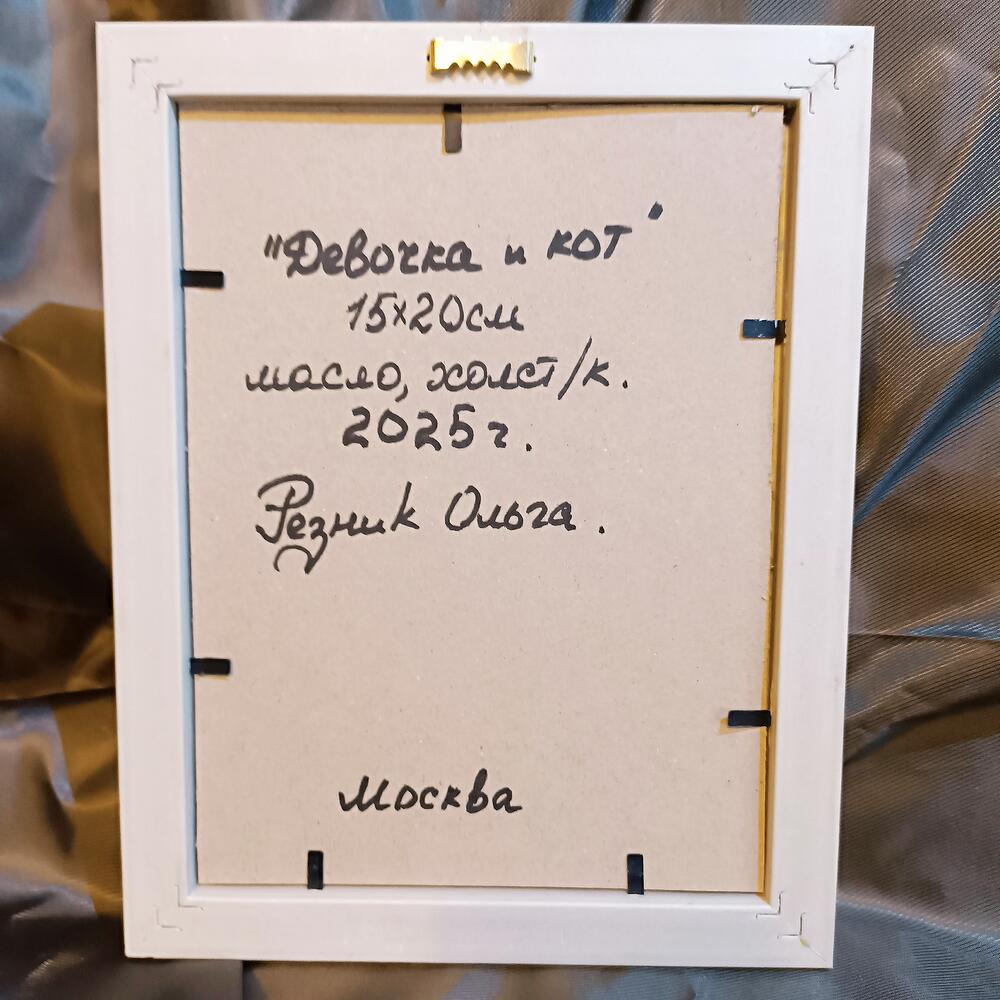 "Девочка и кот"
15х20см
масло, холст/к.
2025г.
Резник Ольга.
Москва